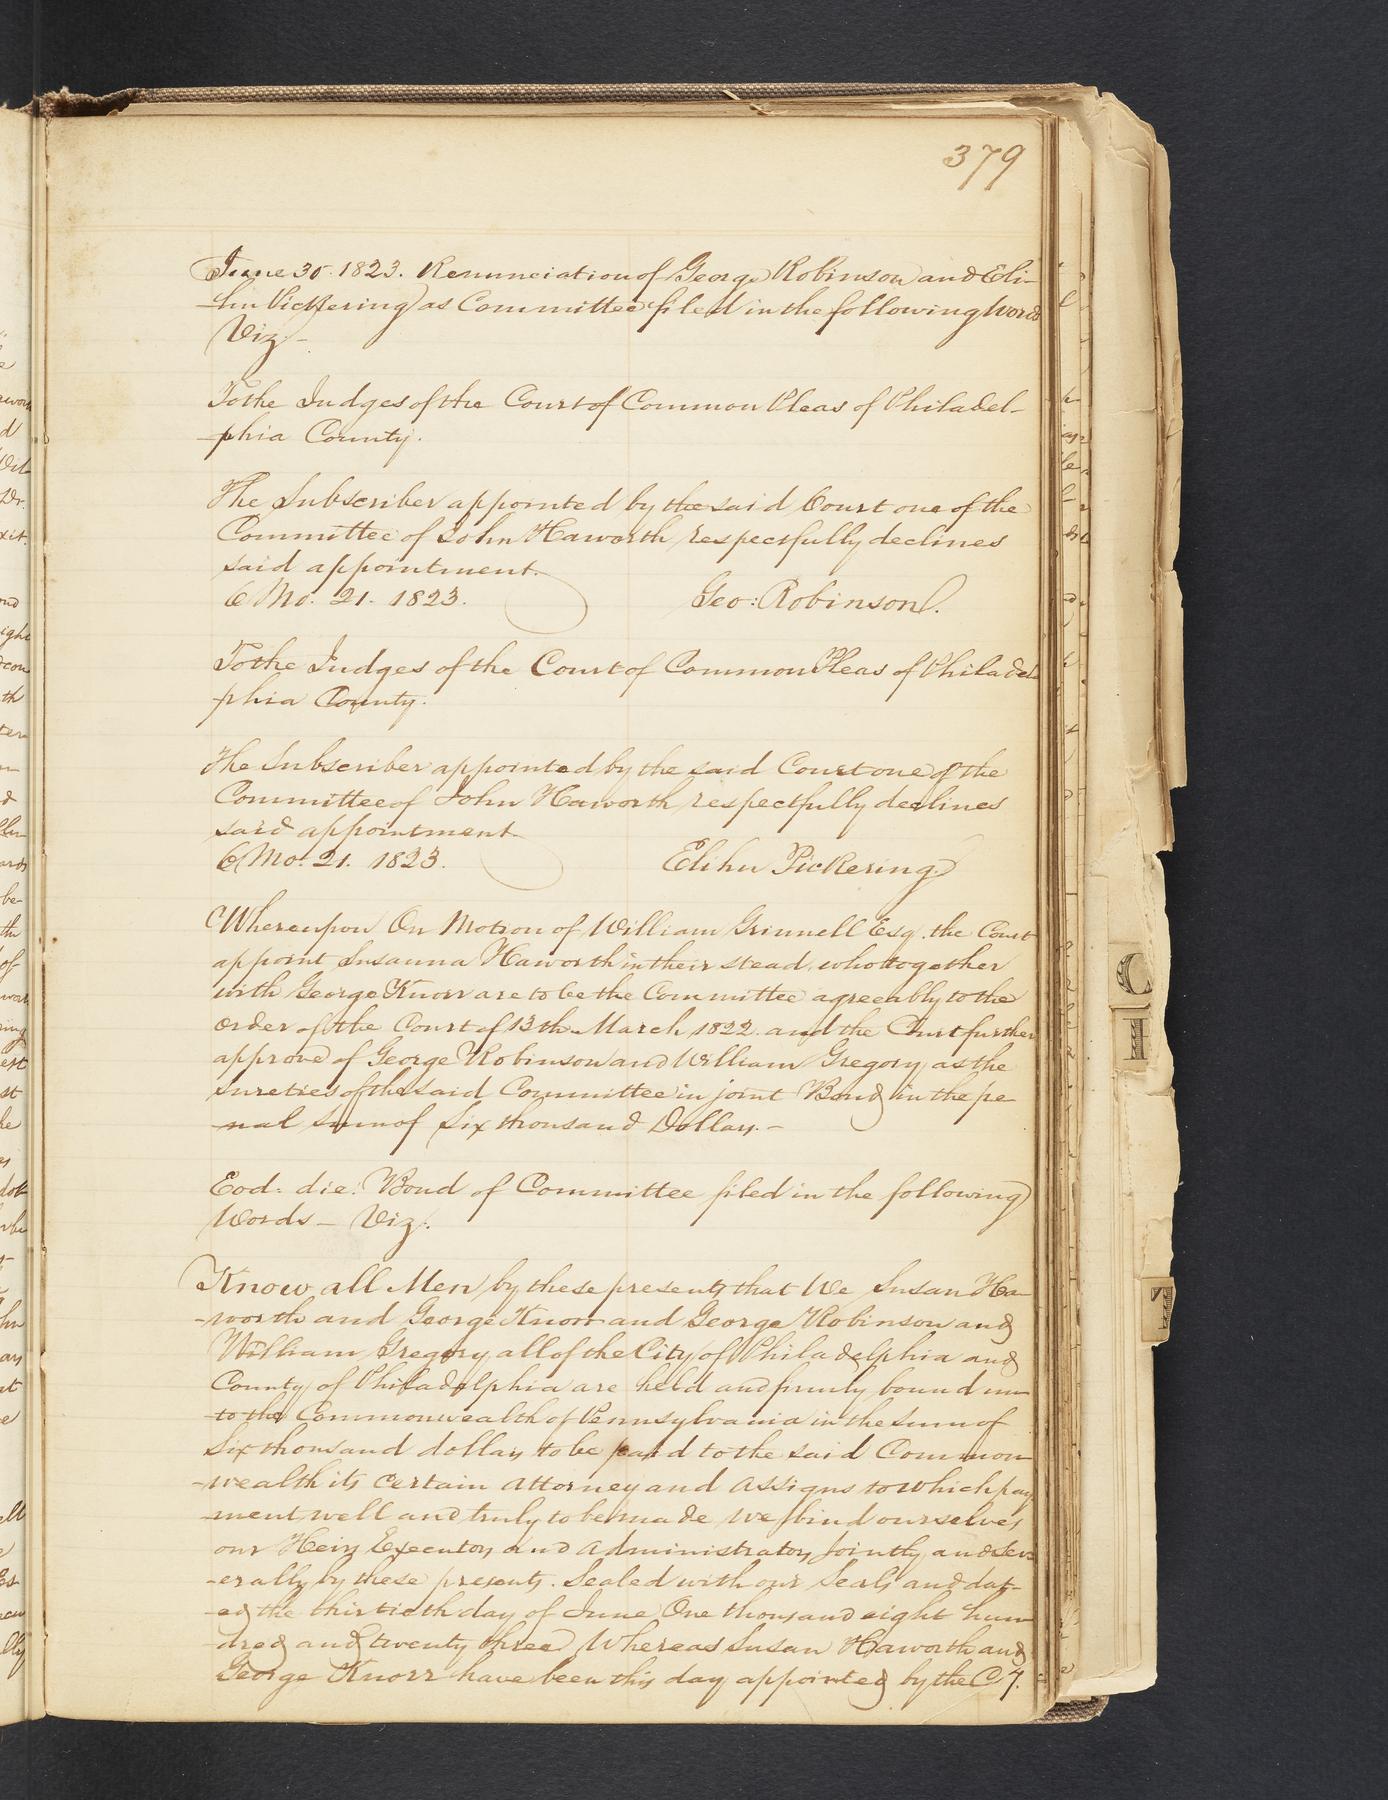 379
June 30. 1823. Renunciation of George Robinson and Eli-
hu Pickering as Committee filed in the following Words
Viz. -
To the Judges of the Court of Common Pleas of Philadel-
-phia County.
The Subscriber appointed by the said Court one of the
Committee of John Haworth respectfully declines
said appointment.
6 Mo. 21. 1823. Geo: Robinson.
To the Judges of the Court of Common Pleas of Philadel
phia County.
The Subscriber appointed by the said Court one of the
Committee of John Haworth respectfully declines
said appointment
6 Mo. 21. 1823. Elihu Pickering
Whereupon On Motion of William Grinnell Esq. the Court
appoint Susanna Haworth in their stead, who together
with George Knorr are to be the Committee agreeably to the
order of the Court of 13th March 1822. and the Court further
approve of George Robinson and William Gregory as the
sureties of the said Committee in joint Bond in the pe
-nal sum of Six thousand Dollars. -
Eod: die: Bond of Committee filed in the following
Words - Viz.
Know all Men by these presents that We Susan Ha-
-worth and George Knorr and George Robinson and
William Gregory all of the City of Philadelphia and
County of Philadelphia are held and firmly bound un-
-to the Commonwealth of Pennsylvania in the sum of
Six thousand dollars to be paid to the said Common
-wealth its certain attorney and assigns to which pay
-ment well and truly to be made We bind ourselves
our Heirs Executors and Administrators jointly and Sev-
-erally by these presents. Sealed with our Seals and dat-
-ed the thirtieth day of June One thousand eight hun-
-dred and twenty three Whereas Susan Haworth and
George Knorr have been this day appointed by the C
C
I
T